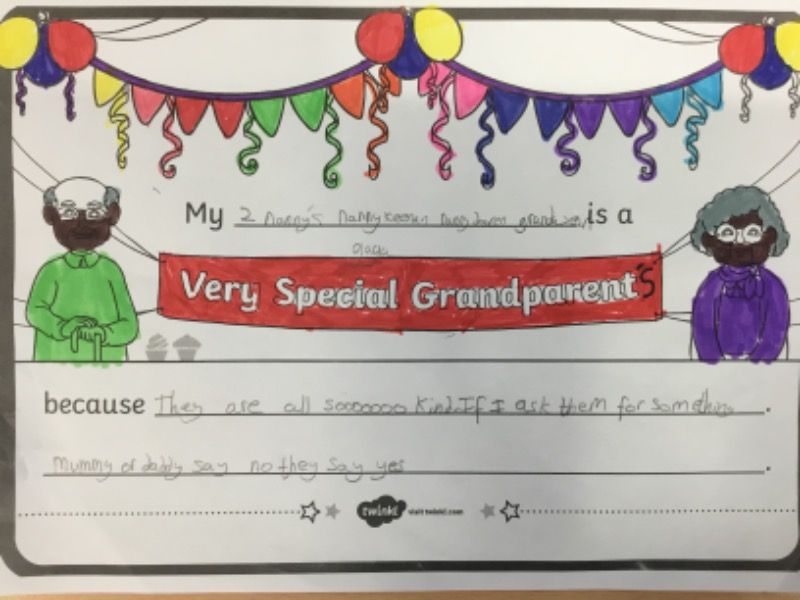 My 2 nanny's nanny is a
Very Special Grandparent's
because They are all sooooooo kind. If I ask them for something.
mummy or daddy say no they say yes.
twinkl visit twinkl.com